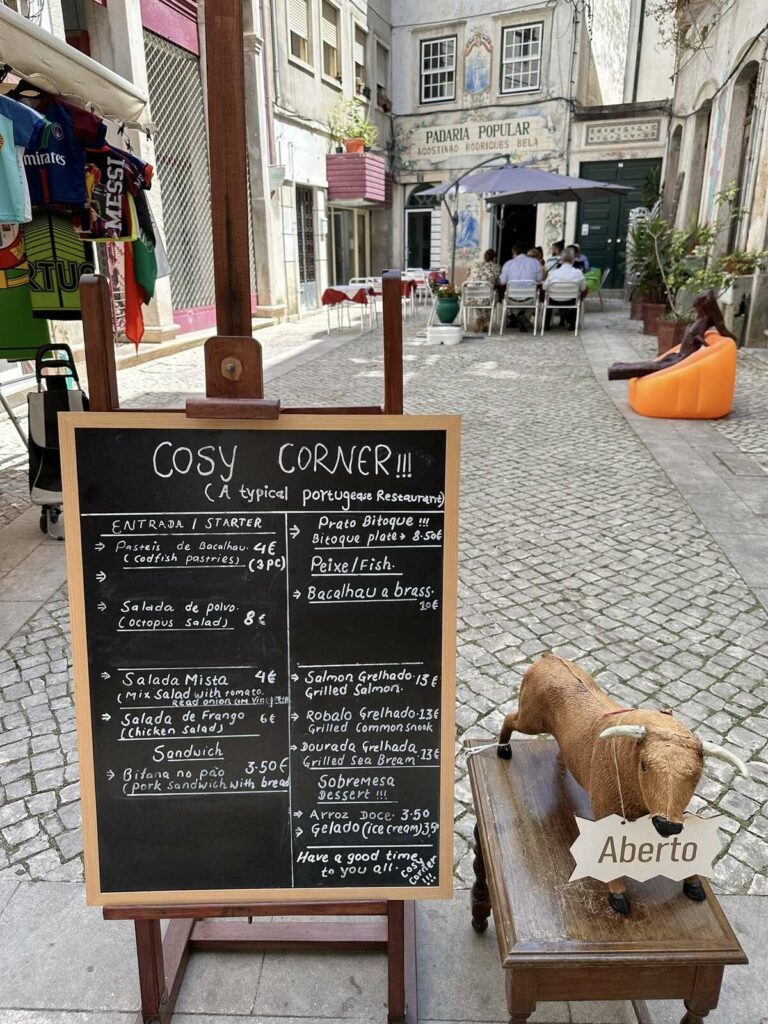 PADARIA POPULAR
AGOSTINHO RODRIGUES BELA
Emirates
MESSI
COSY CORNER!!!
(A typical portugease Restaurant)
ENTRADA / STARTER
→ Pasteis de Bacalhau. 4€
(codfish pastries) (3 PC)
→
→ Salada de polvo.
(octopus salad) 8€
→ Salada Mista 4€
(Mix salad with tomato,
→ Salada de Frango 6€
(Chicken salad)
Sandwich
→ Bifana no pão 3.50€
(pork sandwich with bread
→ Prato Bitoque !!!
Bitoque plate → 8.50€
Peixe/Fish.
→ Bacalhau a brass.
10€
→ Salmon Grelhado. 13€
Grilled Salmon.
→ Robalo Grelhado. 13€
Grilled Common snook
→ Dourada Grelhada
Grilled Sea Bream 13€
Sobremesa
Dessert !!!
→ Arroz Doce. 3.50
→ Gelado (ice cream) 3,50
Have a good time
to you all.
Cosy
Corner
!!!
Aberto